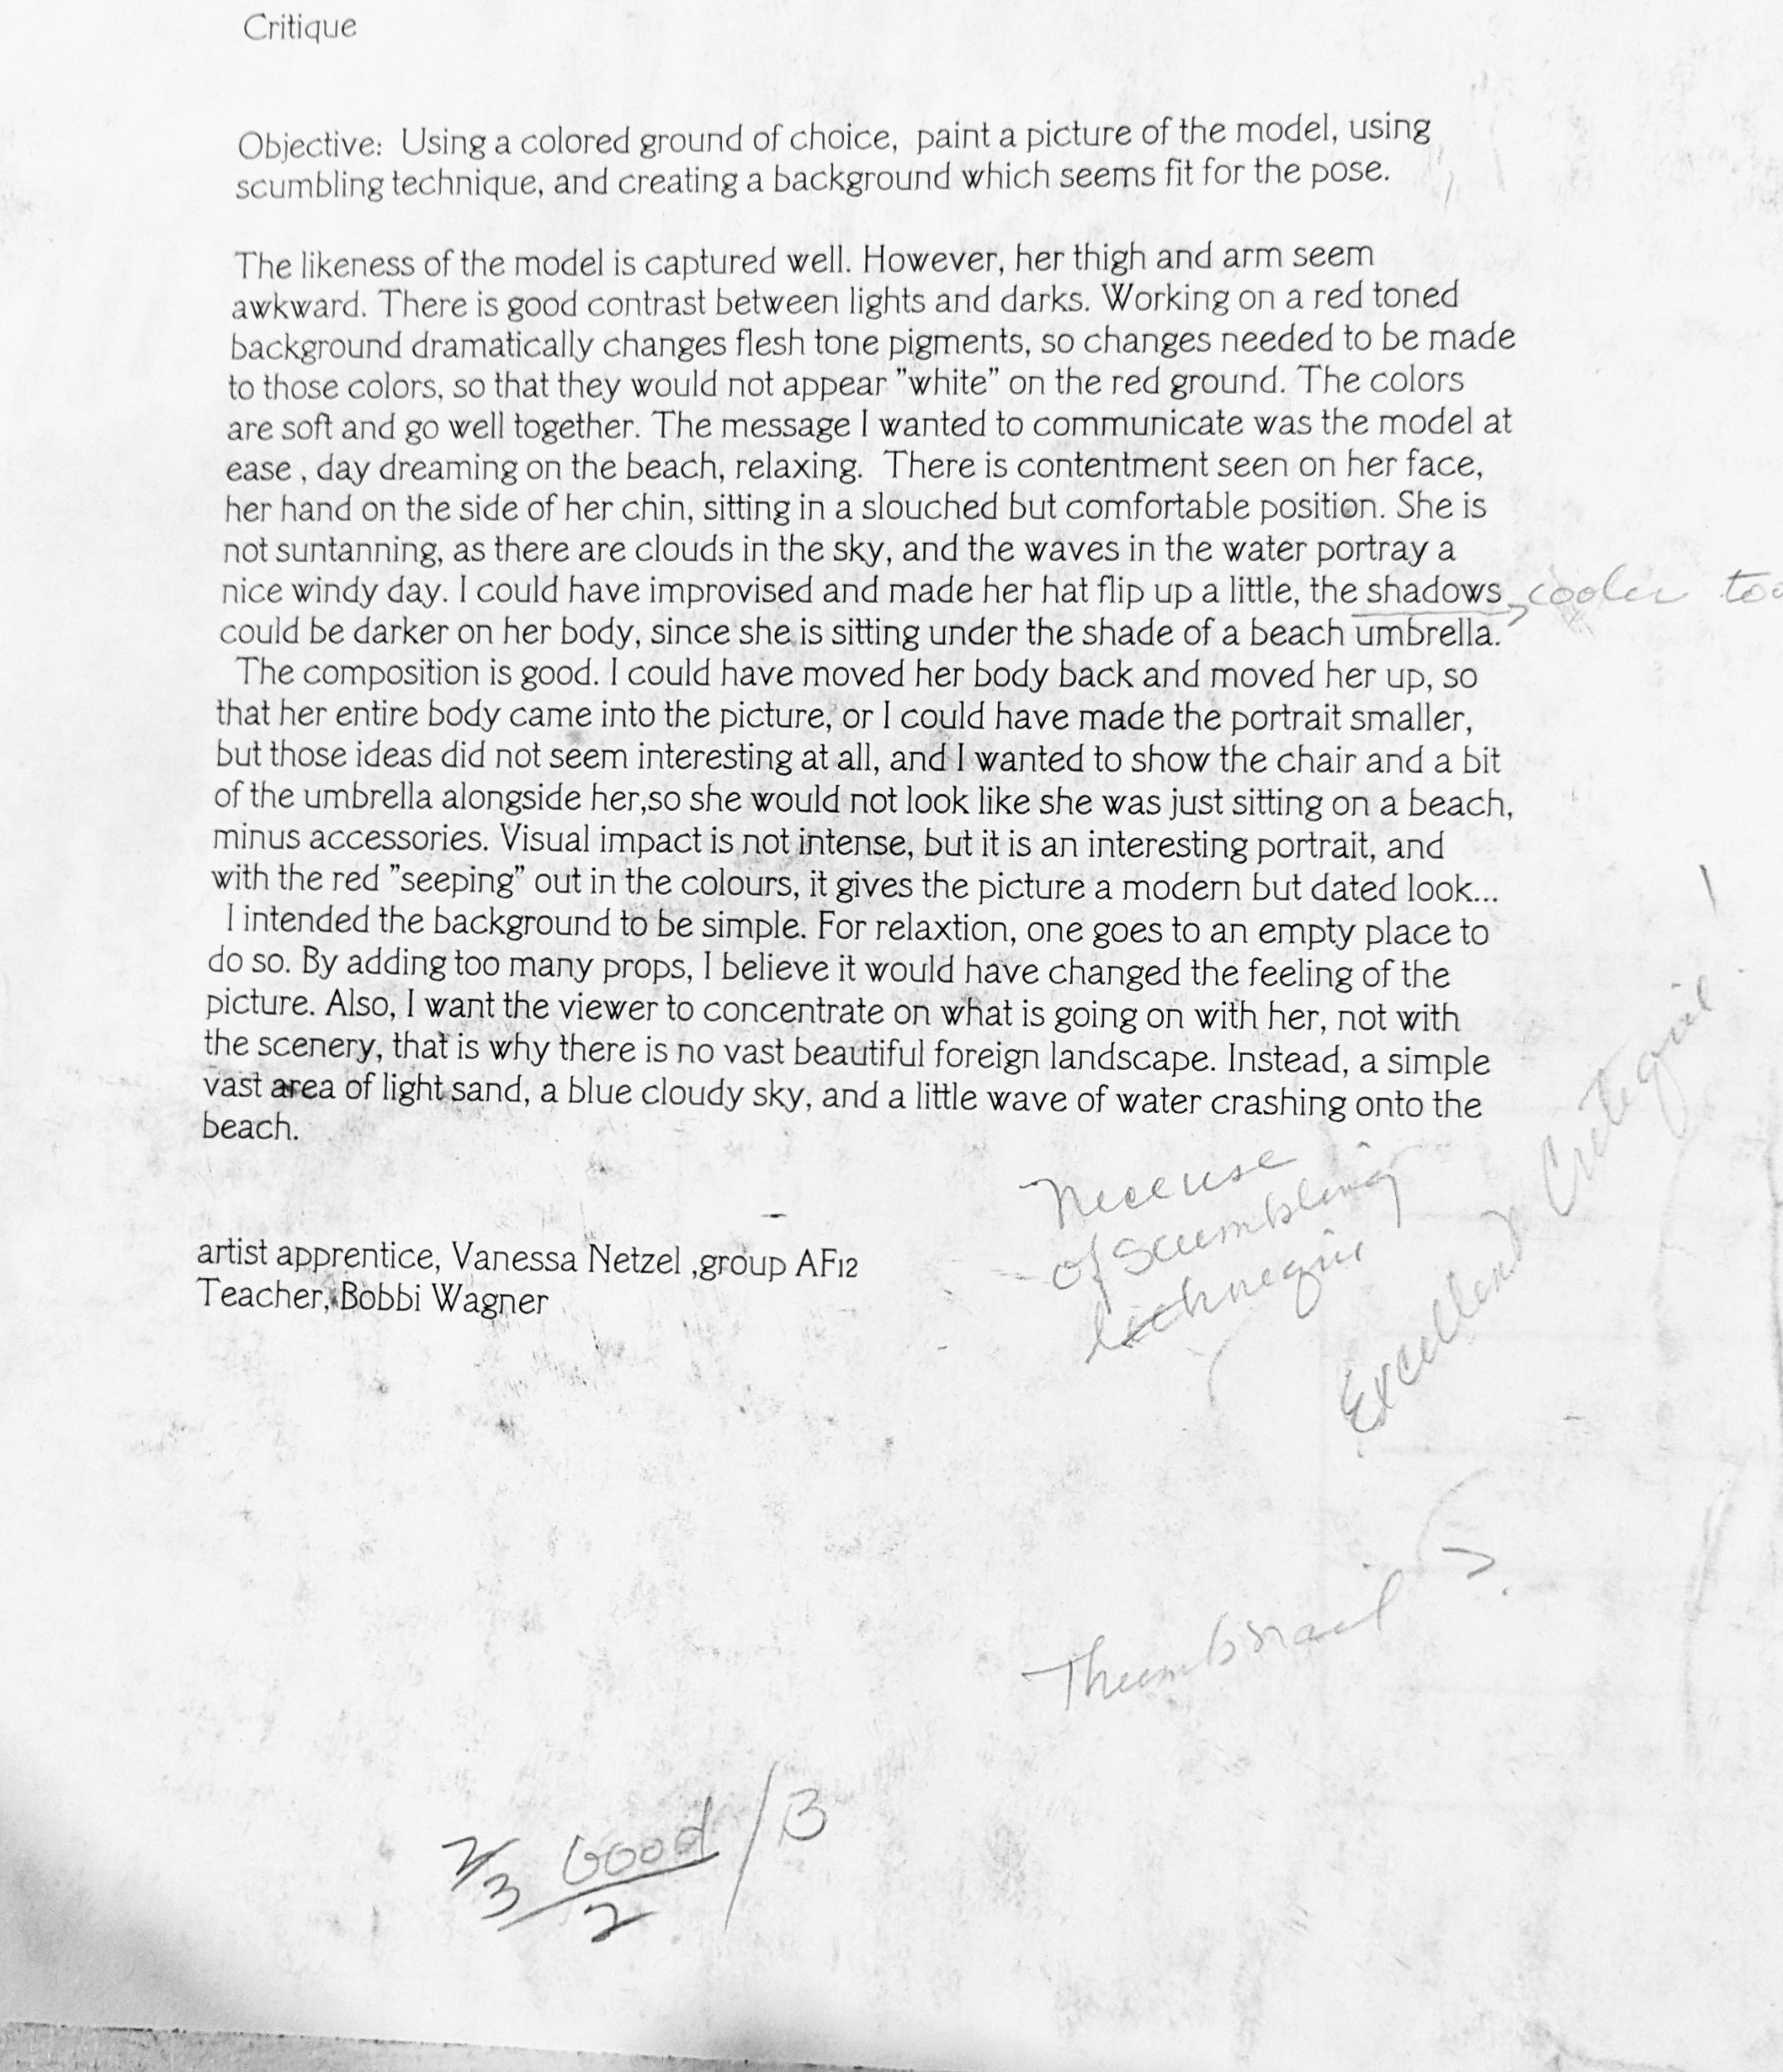 Critique
Objective: Using a colored ground of choice, paint a picture of the model, using
scumbling technique, and creating a background which seems fit for the pose.
The likeness of the model is captured well. However, her thigh and arm seem
awkward. There is good contrast between lights and darks. Working on a red toned
background dramatically changes flesh tone pigments, so changes needed to be made
to those colors, so that they would not appear "white" on the red ground. The colors
are soft and go well together. The message I wanted to communicate was the model at
ease , day dreaming on the beach, relaxing. There is contentment seen on her face,
her hand on the side of her chin, sitting in a slouched but comfortable position. She is
not suntanning, as there are clouds in the sky, and the waves in the water portray a
nice windy day. I could have improvised and made her hat flip up a little, the shadows cooler too
could be darker on her body, since she is sitting under the shade of a beach umbrella.
The composition is good. I could have moved her body back and moved her up, so
that her entire body came into the picture, or I could have made the portrait smaller,
but those ideas did not seem interesting at all, and I wanted to show the chair and a bit
of the umbrella alongside her,so she would not look like she was just sitting on a beach,
minus accessories. Visual impact is not intense, but it is an interesting portrait, and
with the red "seeping" out in the colours, it gives the picture a modern but dated look...
I intended the background to be simple. For relaxtion, one goes to an empty place to
do so. By adding too many props, I believe it would have changed the feeling of the
picture. Also, I want the viewer to concentrate on what is going on with her, not with
the scenery, that is why there is no vast beautiful foreign landscape. Instead, a simple
vast area of light sand, a blue cloudy sky, and a little wave of water crashing onto the
beach.
artist apprentice, Vanessa Netzel ,group AF12
Teacher, Bobbi Wagner
of scumbling
Excellent Critique!
Thumbnail ?
2/3 Good/2 /B